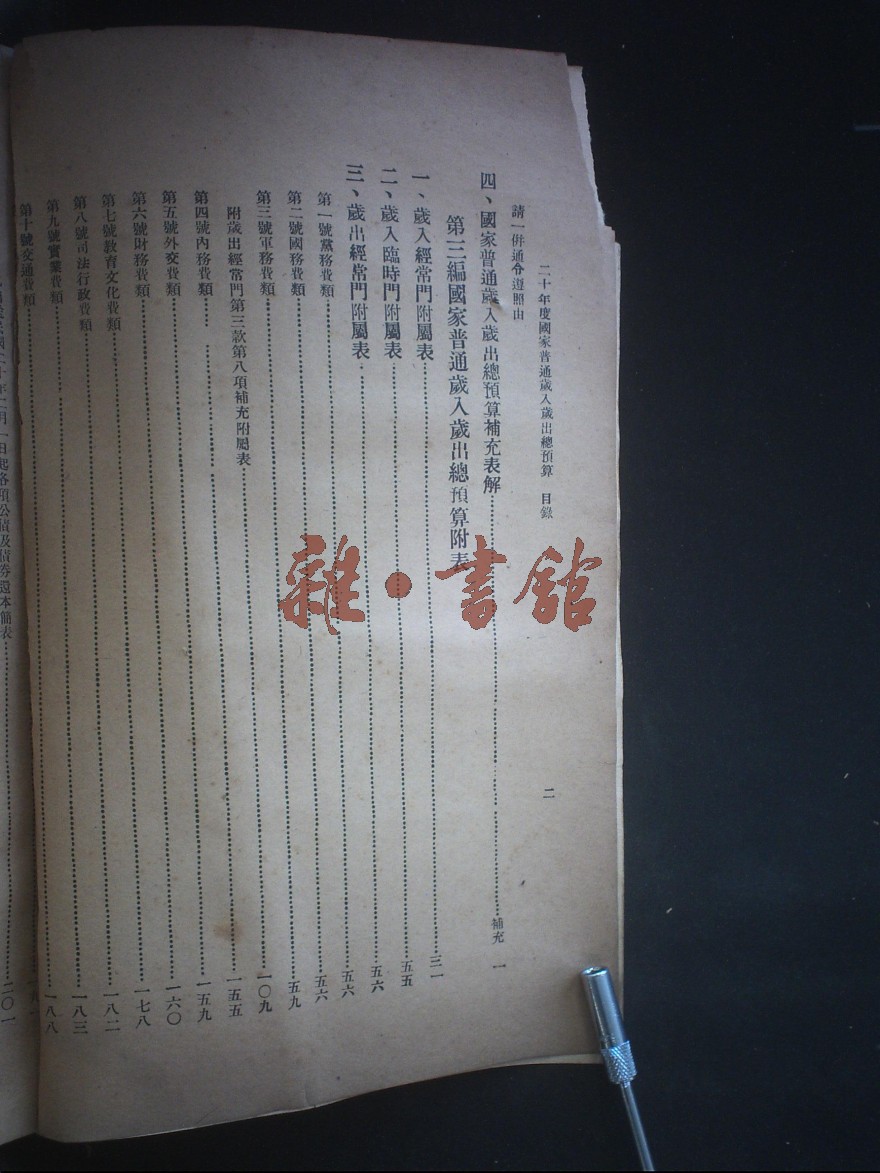 二十年度國家普通歲入歲出總預算 目錄 二
請一併通令遵照由
四、國家普通歲入歲出總預算補充表解……補充 一
第三編國家普通歲入歲出總預算附表
一、歲入經常門附屬表……三一
二、歲入臨時門附屬表……五五
三、歲出經常門附屬表……五六
第一號黨務費類……五六
第二號國務費類……五六
第三號軍務費類……五九
附歲出經常門第三款第八項補充附屬表……一〇九
第四號內務費類……一五五
第五號外交費類……一五九
第六號財務費類……一六〇
第七號教育文化費類……一七八
第八號司法行政費類……一八二
第九號實業費類……一八三
第十號交通費類……一八八
民國二十年二月一日起各項公債及債券還本簡表……二〇一
雜·書館